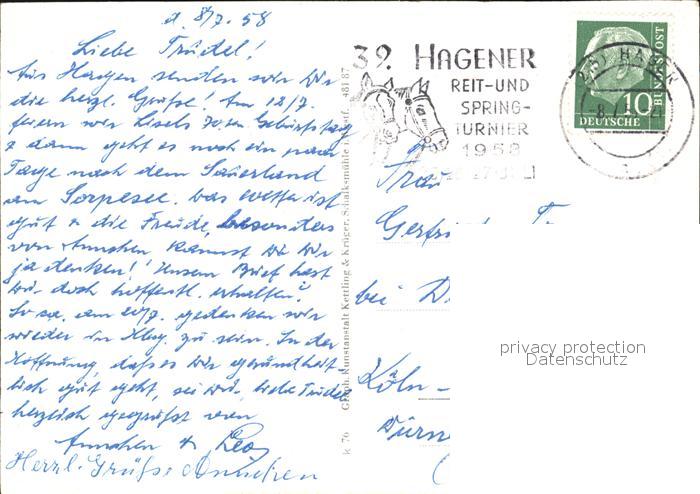 d. 8/7. 58
Liebe Trudel!
Aus Hagen senden wir Dir
die herzl. Grüße! Am 12/7.
feiern wir Lisels 70. Geburtstag
u. dann geht es noch ein paar
Tage nach dem Sauerland
am Sorpesee. Das Wetter ist
gut u. die Freude, besonders
von Annchen kannst Du Dir
ja denken! Unsern Brief hast
Du doch hoffentl. erhalten?
So ca. am 20/7. gedenken wir
wieder in Hbg. zu sein. In der
Hoffnung, daß es Dir gesundheit-
lich gut geht, sei Du, liebe Trudel
herzlich gegrüßt von
Annchen u. Leo
Herzl. Grüße Annchen
k 76 Graph. Kunstanstalt Kettling & Krüger, Schalksmühle i. Westf. 481 87
39. HAGENER
REIT-UND
SPRING-
TURNIER
1958
HAGEN
10
DEUTSCHE
BUNDESPOST
Frau
bei
Köln-
privacy protection
Datenschutz